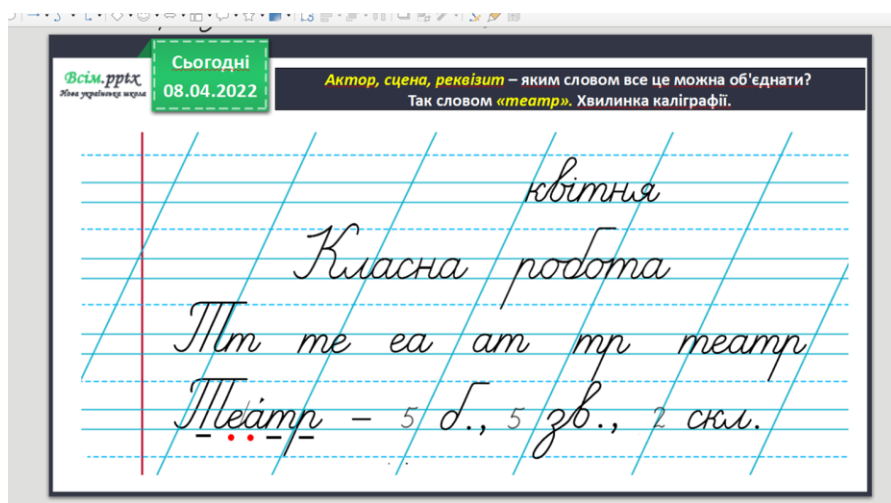 Всім.pptx
Нова українська школа
Сьогодні
08.04.2022
Актор, сцена, реквізит – яким словом все це можна об'єднати?
Так словом «театр». Хвилинка каліграфії.
квітня
Класна робота
Тт те еа ат тр театр
Теа́тр – 5 б., 5 зв., 2 скл.